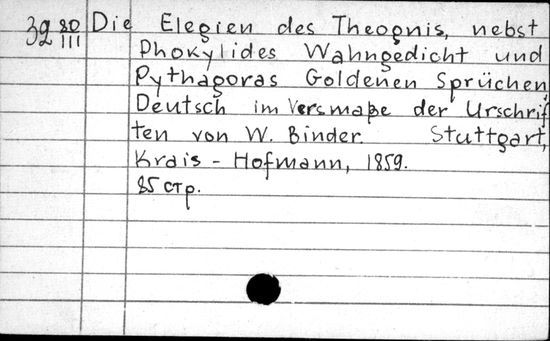 39 80/III Die Elegien des Theognis, nebst
Phokylides Wahngedicht und
Pythagoras Goldenen Sprüchen,
Deutsch im Versmaße der Urschrif
ten von W. Binder. Stuttgart,
Krais - Hofmann, 1859.
85 стр.